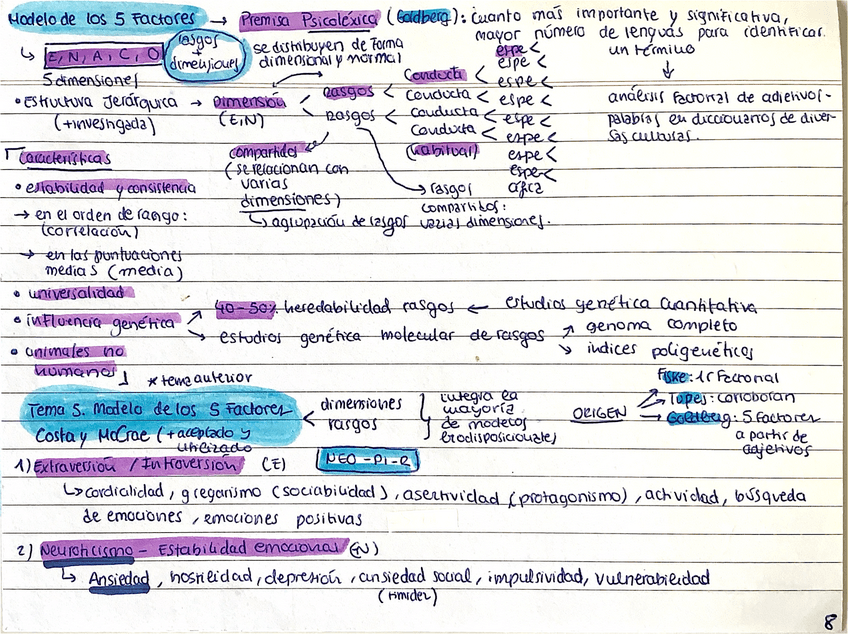 Modelo de los 5 Factores → Premisa Psicoléxica (Goldberg): Cuanto más importante y significativa,
mayor número de lenguas para identificar
un término
↓
análisis factorial de adjetivos-
palabras en diccionarios de diver-
sas culturas.
↳ E, N, A, C, O
5 dimensiones
rasgos
+
dimensiones
se distribuyen de forma
dimensional y normal
• Estructura Jerárquica → Dimensión < rasgos < Conducta <
(+investigada) (E,N) rasgos < Conducta <
Conducta <
Conducta <
(habitual)
espe <
espe <
espe <
espe <
espe <
espe <
espe <
espe <
cífica
compartidos
(se relacionan con
varias
dimensiones)
↳ agrupación de rasgos
→ rasgos
compartidos:
varias dimensiones.
Características
• estabilidad y consistencia
→ en el orden de rango:
(correlación)
→ en las puntuaciones
medias (media)
• universalidad
• influencia genética
↗ 40-50% heredabilidad rasgos ← estudios genética cuantitativa
↘ estudios genética molecular de rasgos ↗ genoma completo
↘ índices poligenéticos
• animales no
humanos
* tema anterior
Tema 5. Modelo de los 5 Factores
Costa y McCrae (+aceptado y
utilizado
< dimensiones
rasgos
integra la
mayoría
de modelos
ORIGEN
Fiske: 1º Factorial
→ Tupes: corroboran
→ Goldberg: 5 Factores
a partir de
adjetivos
1) Extraversión / Introversión (E) NEO-PI-R
↳ cordialidad, gregarismo (sociabilidad), asertividad (protagonismo), actividad, búsqueda
de emociones, emociones positivas
2) Neuroticismo - Estabilidad emocional (N)
↳ Ansiedad, hostilidad, depresión, ansiedad social, impulsividad, vulnerabilidad
(timidez)
8